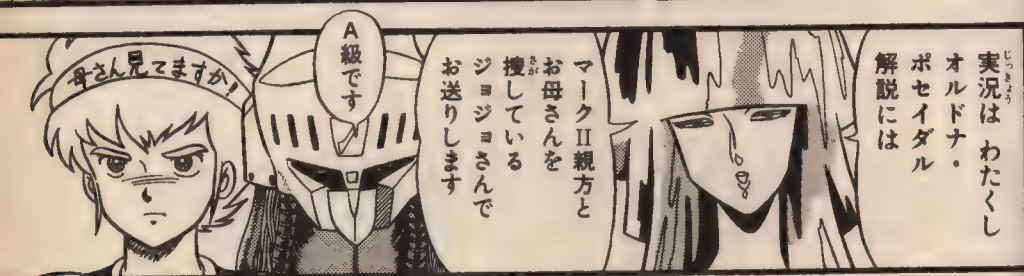 実況は わたくし
オルドナ・
ポセイダル
解説には
マークⅡ親方と
お母さんを
捜している
ジョジョさんで
お送りします
A級です
母さん見てますか!